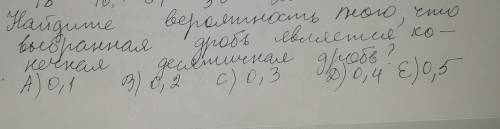 Найдите вероятность того, что
выбранная дробь является ко-
нечная десятичная дробь?
А) 0,1 В) 0,2 С) 0,3 Д) 0,4 Е) 0,5